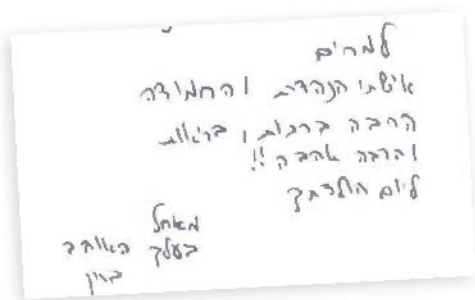 למרים
אישתו הנהדרת והחמודה
הרבה ברכות, בריאות
והרבה אהבה !!
ליום הולדתך
מאחל
בעלך האוהב